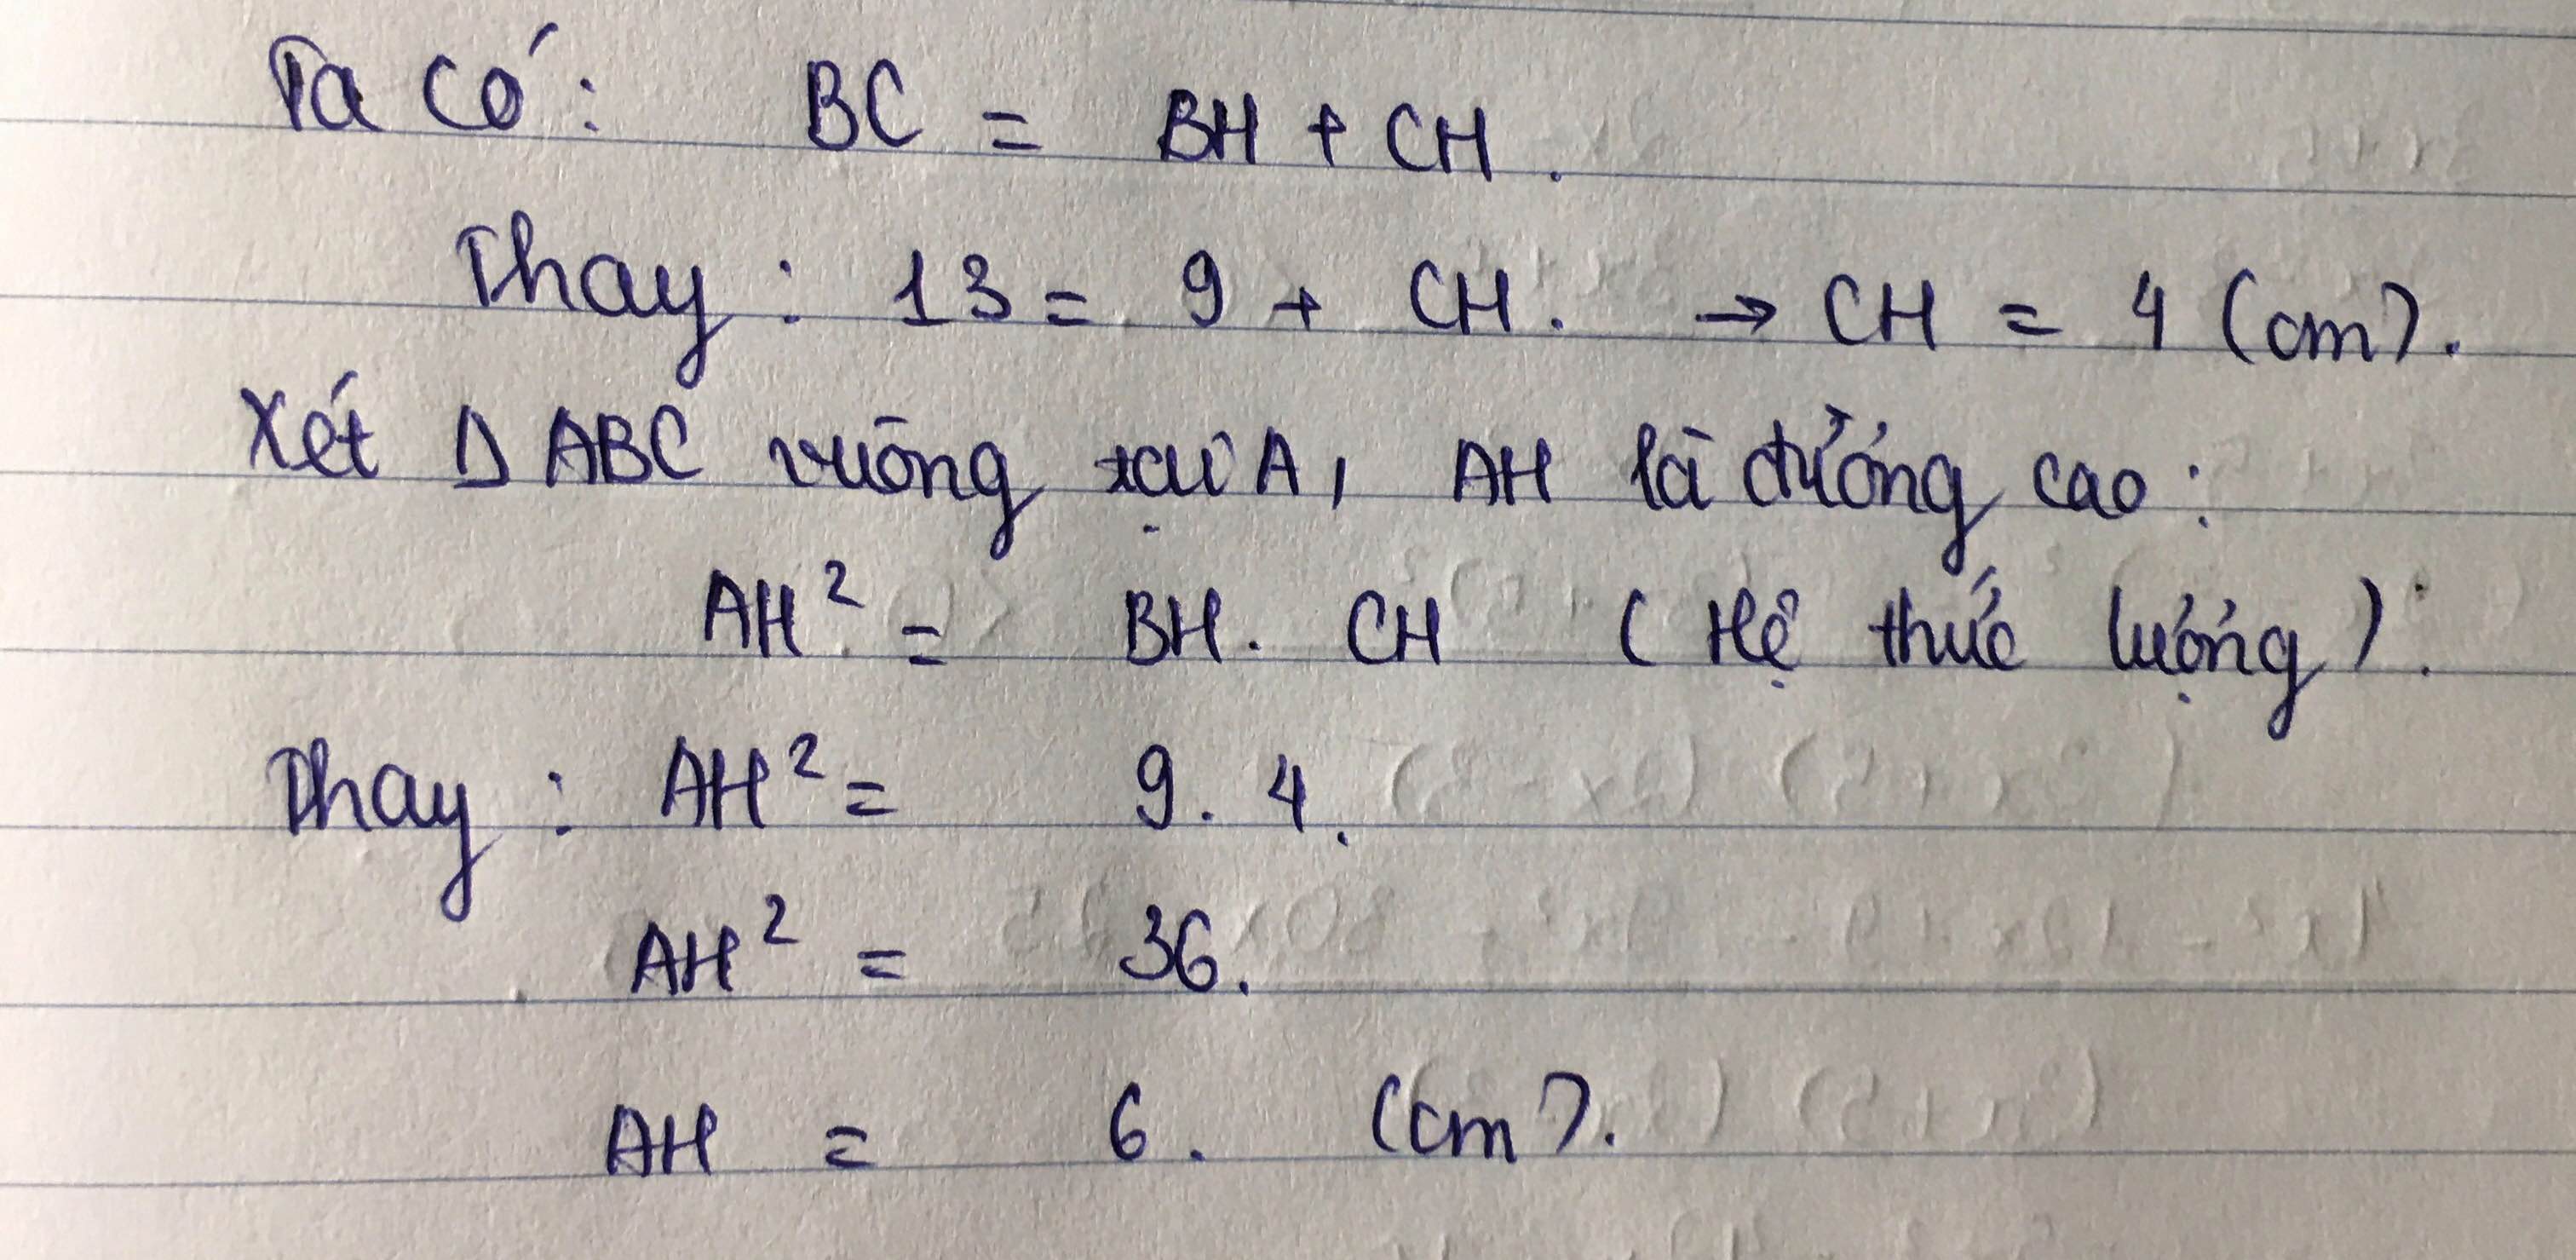 Ta có: BC = BH + CH.
Thay: 13 = 9 + CH. → CH = 4 (cm).
Xét Δ ABC vuông tại A, AH là đường cao:
AH² = BH. CH (Hệ thức lượng):
Thay: AH² = 9. 4.
AH² = 36.
AH = 6. (cm).